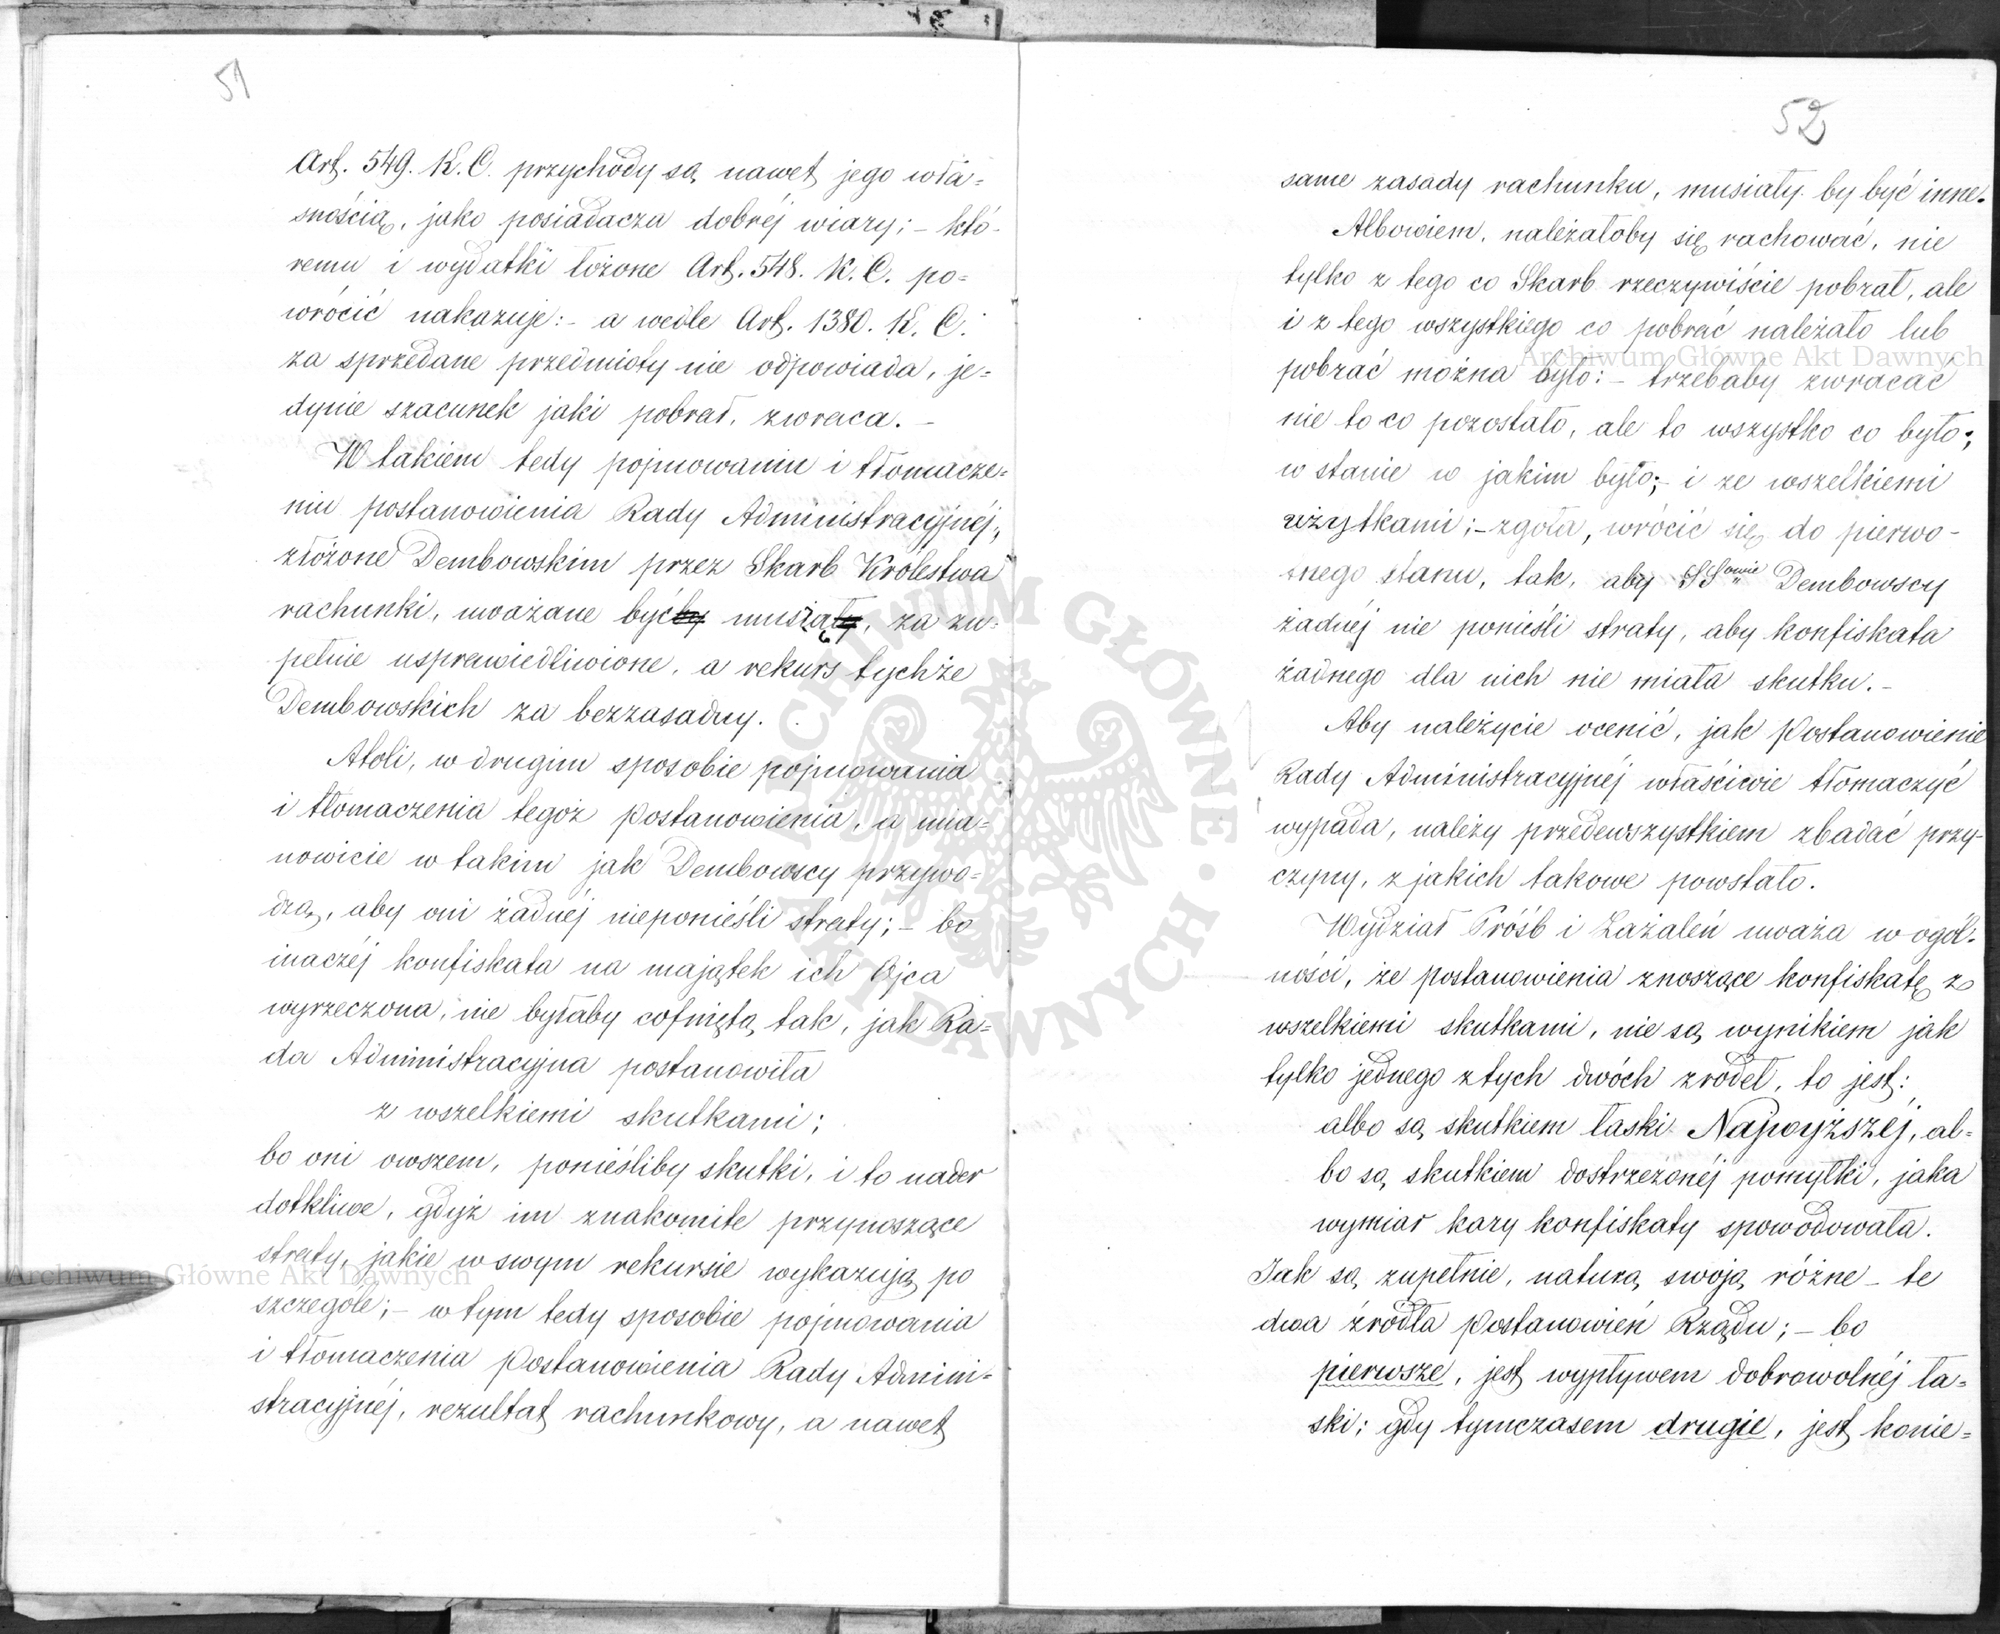 51
Art. 549. K. C. przychody są nawet jego wła-
snością, jako posiadacza dobréj wiary; – któ-
remu i wydatki łożone Art. 548. K. C. po-
wrócić nakazuje: – a wedle Art. 1380. K. C.
za sprzedane przedmioty nie odpowiada, je-
dynie szacunek jaki pobrał, zwraca. –
W takiem tedy pojmowaniu i tłomacze-
niu postanowienia Rady Administracyjnéj,
złożone Dembowskim przez Skarb Królestwa
rachunki, uważane być muszą, za zu-
pełnie usprawiedliwione, a rekurs tychże
Dembowskich za bezzasadny.
Atoli, w drugim sposobie pojmowania
i tłomaczenia tegoż postanowienia, a mia-
nowicie w takim jak Dembowscy przywo-
dzą, aby oni żadnéj nieponieśli straty; – bo
inaczéj konfiskata na majątek ich Ojca
wyrzeczona, nie byłaby cofniętą tak, jak Ra-
da Administracyjna postanowiła
z wszelkiemi skutkami;
bo oni owszem, ponieśliby skutki, i to nader
dotkliwe, gdyż im znakomite przynoszące
straty, jakie w swym rekursie wykazują po
szczególe; – w tym tedy sposobie pojmowania
i tłomaczenia Postanowienia Rady Admini-
stracyjnéj, rezultat rachunkowy, a nawet
52
same zasady rachunku, musiały by być inne.
Albowiem, należałoby się rachować, nie
tylko z tego co Skarb rzeczywiście pobrał, ale
i z tego wszystkiego co pobrać należało lub
pobrać można było: – trzebaby zwracać
nie to co pozostało, ale to wszystko co było;
w stanie w jakim było; – i ze wszelkiemi
użytkami; – zgoła, wrócić się do pierwo-
tnego stanu, tak, aby SSowie Dembowscy
żadnéj nie ponieśli straty, aby konfiskata
żadnego dla nich nie miała skutku. –
Aby należycie ocenić, jak Postanowienie
Rady Administracyjnéj właściwie tłomaczyć
wypada, należy przedewszystkiem zbadać przy-
czyny, z jakich takowe powstało.
Wydział Próśb i Zażaleń uważa w ogól-
ności, że postanowienia znoszące konfiskatę z
wszelkiemi skutkami, nie są wynikiem jak
tylko jednego z tych dwóch źródeł, to jest:
albo są skutkiem łaski Najwyższéj, al-
bo są skutkiem dostrzeżonéj pomyłki, jaka
wymiar kary konfiskaty spowodowała.
Jak są zupełnie, naturą swoją różne – te
dwa źródła Postanowień Rządu; – bo
pierwsze, jest wypływem dobrowolnéj ła-
ski; gdy tymczasem drugie, jest konie-
Archiwum Główne Akt Dawnych
Archiwum Główne Akt Dawnych
ARCHIWUM GŁÓWNE · AKT DAWNYCH ·